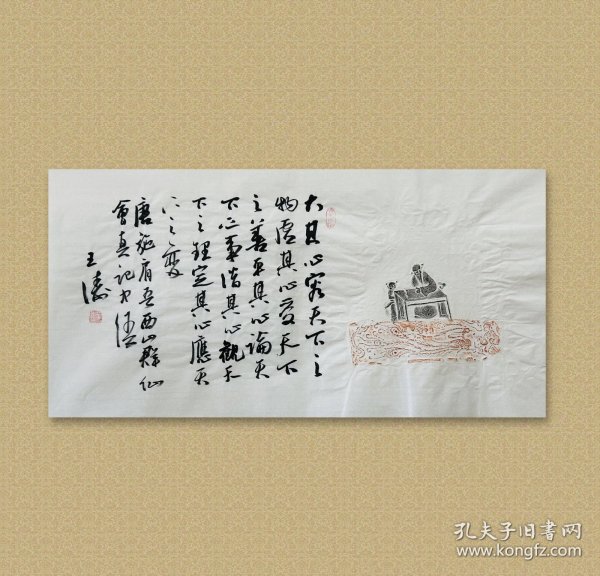 大其心容天下之
物虚其心受天下
之善平其心論天
下之事潜其心觀天
下之理定其心應天
下之變
唐施肩吾西山群仙
會真記
王濤
孔夫子旧書网
www.kongfz.com